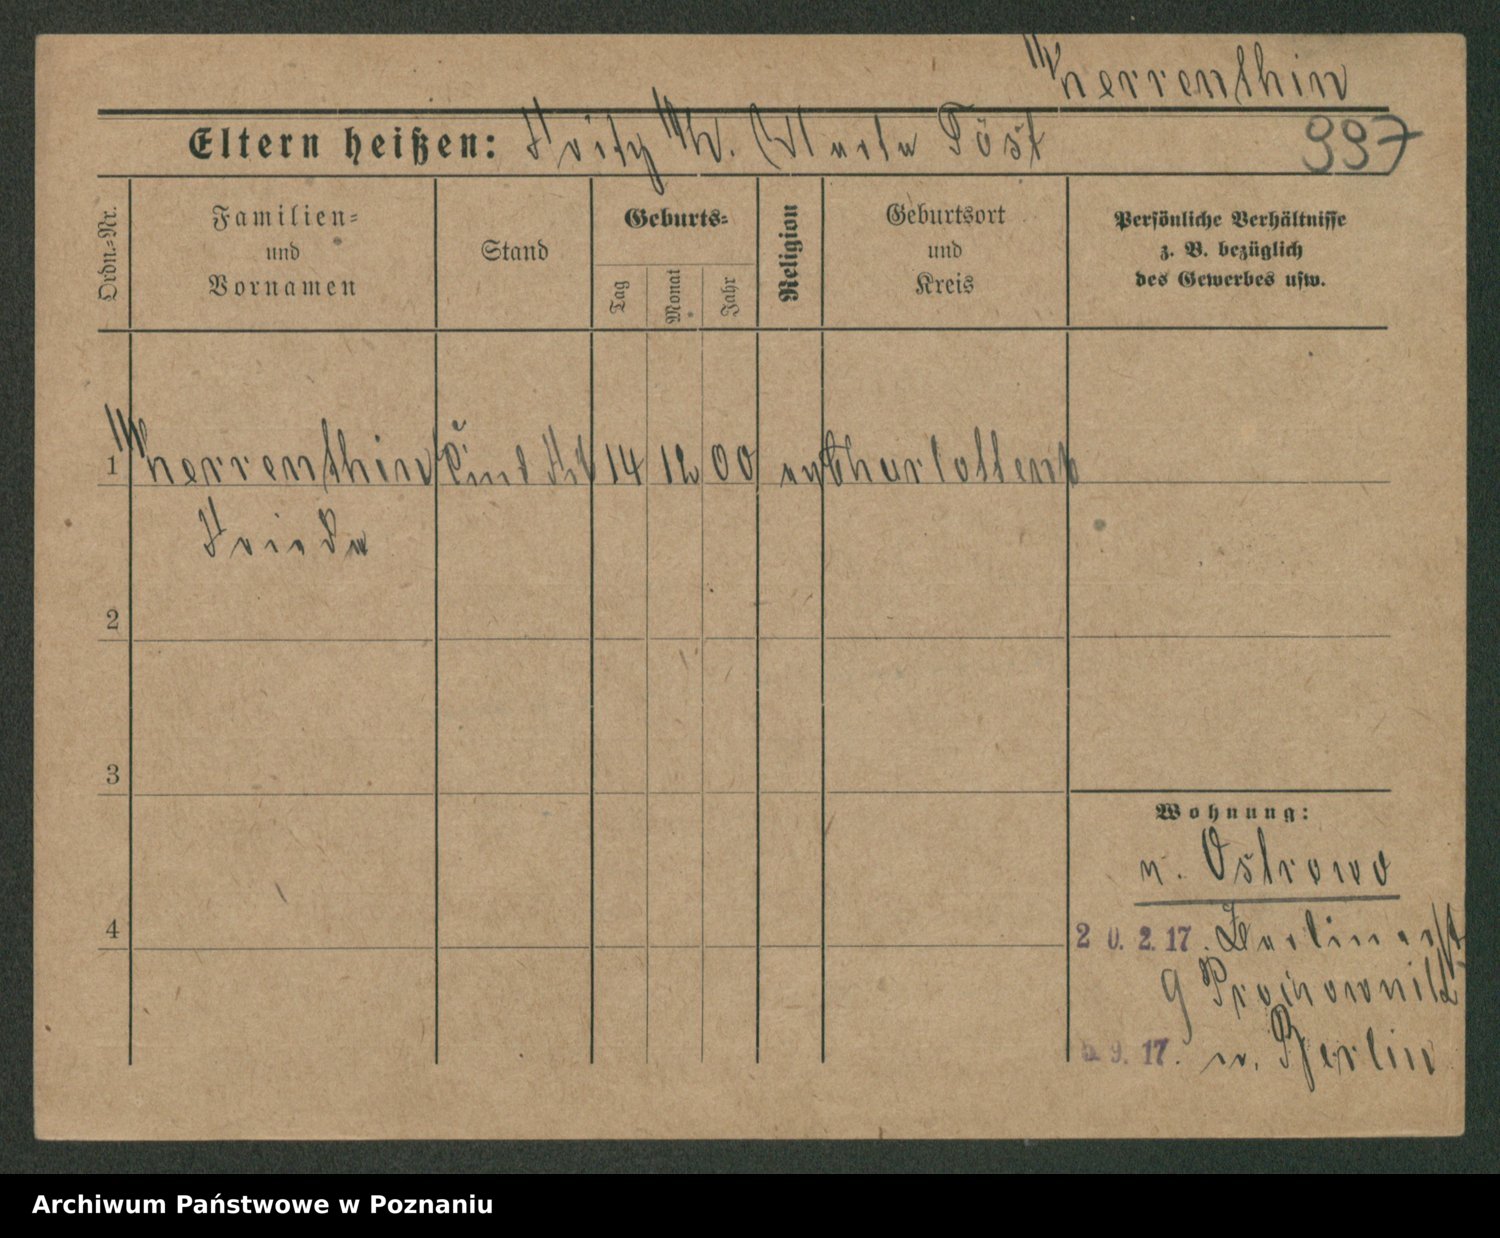 Wherrenthin
Eltern heißen: Fritz W. Marta Töst
997
Ordn.=Nr.
Familien=
und
Vornamen
Stand
Geburts=
Tag
Monat
Jahr
Religion
Geburtsort
und
Kreis
Persönliche Verhältnisse
z. B. bezüglich
des Gewerbes usw.
1 Wherrenthin 14 12 00 ev Charlottenb
Frieda
2
3
Wohnung:
n. Ostrowo
4
20. 2. 17.
9
5. 9. 17. n. Berlin
Archiwum Państwowe w Poznaniu